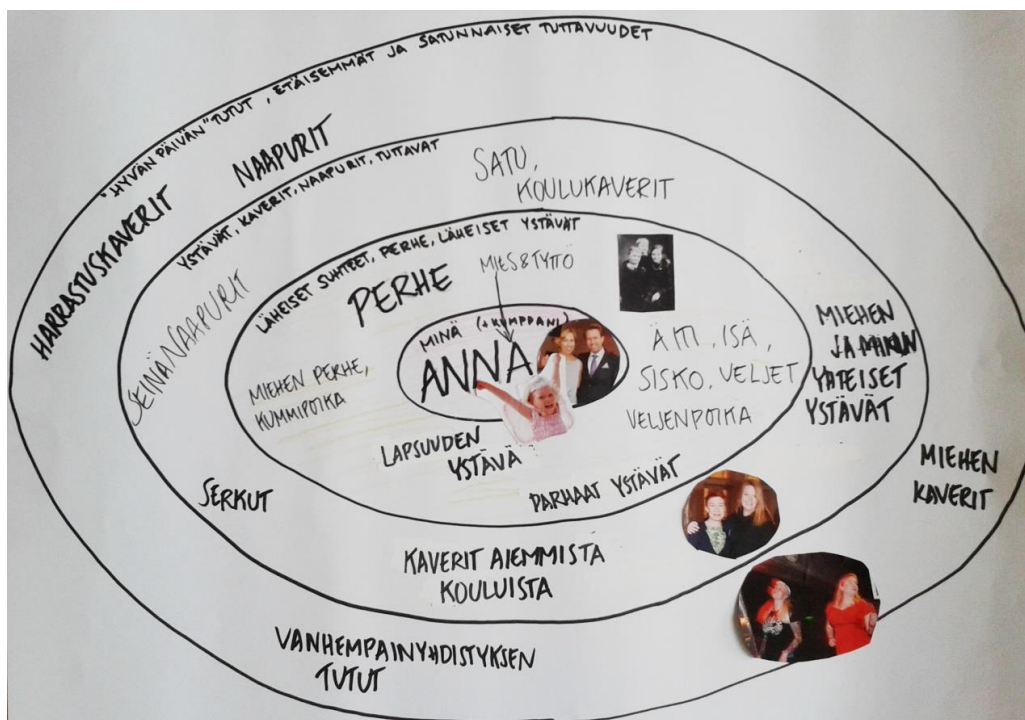 "HYVÄN PÄIVÄN" TUTUT, ETÄISEMMÄT JA SATUNNAISET TUTTAVUUDET
HARRASTUSKAVERIT
NAAPURIT
YSTÄVÄT, KAVERIT, NAAPURIT, TUTTAVAT
SATU,
KOULUKAVERIT
SEINÄNAAPURIT
LÄHEISET SUHTEET, PERHE, LÄHEISET YSTÄVÄT
PERHE
MIES & TYTTÖ
MINÄ (+KUMPPANI)
ANNA
MIEHEN PERHE,
KUMMIPOIKA
ÄITI, ISÄ,
SISKO, VELJET
VELJENPOIKA
LAPSUUDEN
YSTÄVÄ
PARHAAT YSTÄVÄT
MIEHEN
JA
YHTEISET
YSTÄVÄT
MIEHEN
KAVERIT
SERKUT
KAVERIT AIEMMISTA
KOULUISTA
VANHEMPAINYHDISTYKSEN
TUTUT